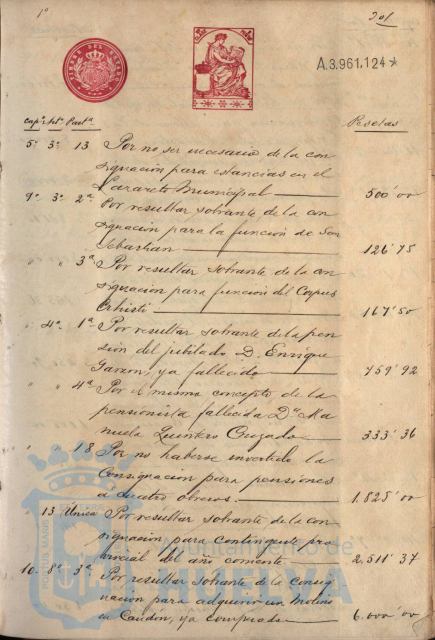 1º
201
A.3.961.124*
Capº Artº Partª Pesetas
5º 3º 13 Por no ser necesario de la con
signación para estancias en el
Lazareto Municipal 500'00
9º 3º 2ª Por resultar sobrante de la con
signación para la función de San
Sebastian 126'75
" " 3ª Por resultar sobrante de la con
signación para función del Corpus
Christi 167'50
" 4º 1ª Por resultar sobrante de la pen
sión del jubilado D. Enrique
ya fallecido 759'92
" " 4ª Por el mismo concepto de la
pensionista fallecida Dª Ma
nuela Quintero 333'36
" " 18 Por no haberse invertido la
Consignación para pensiones
a cuatro obreros. 1.825'00
13 Única Por resultar sobrante de la con
signación para contingente pro
vincial del año corriente 2,511'37
10 8º 3ª Por resultar sobrante de la consig
nación para adquirir un Molino
en Gandón, ya comprado 6.000'00
Ayuntamiento de
HUELVA